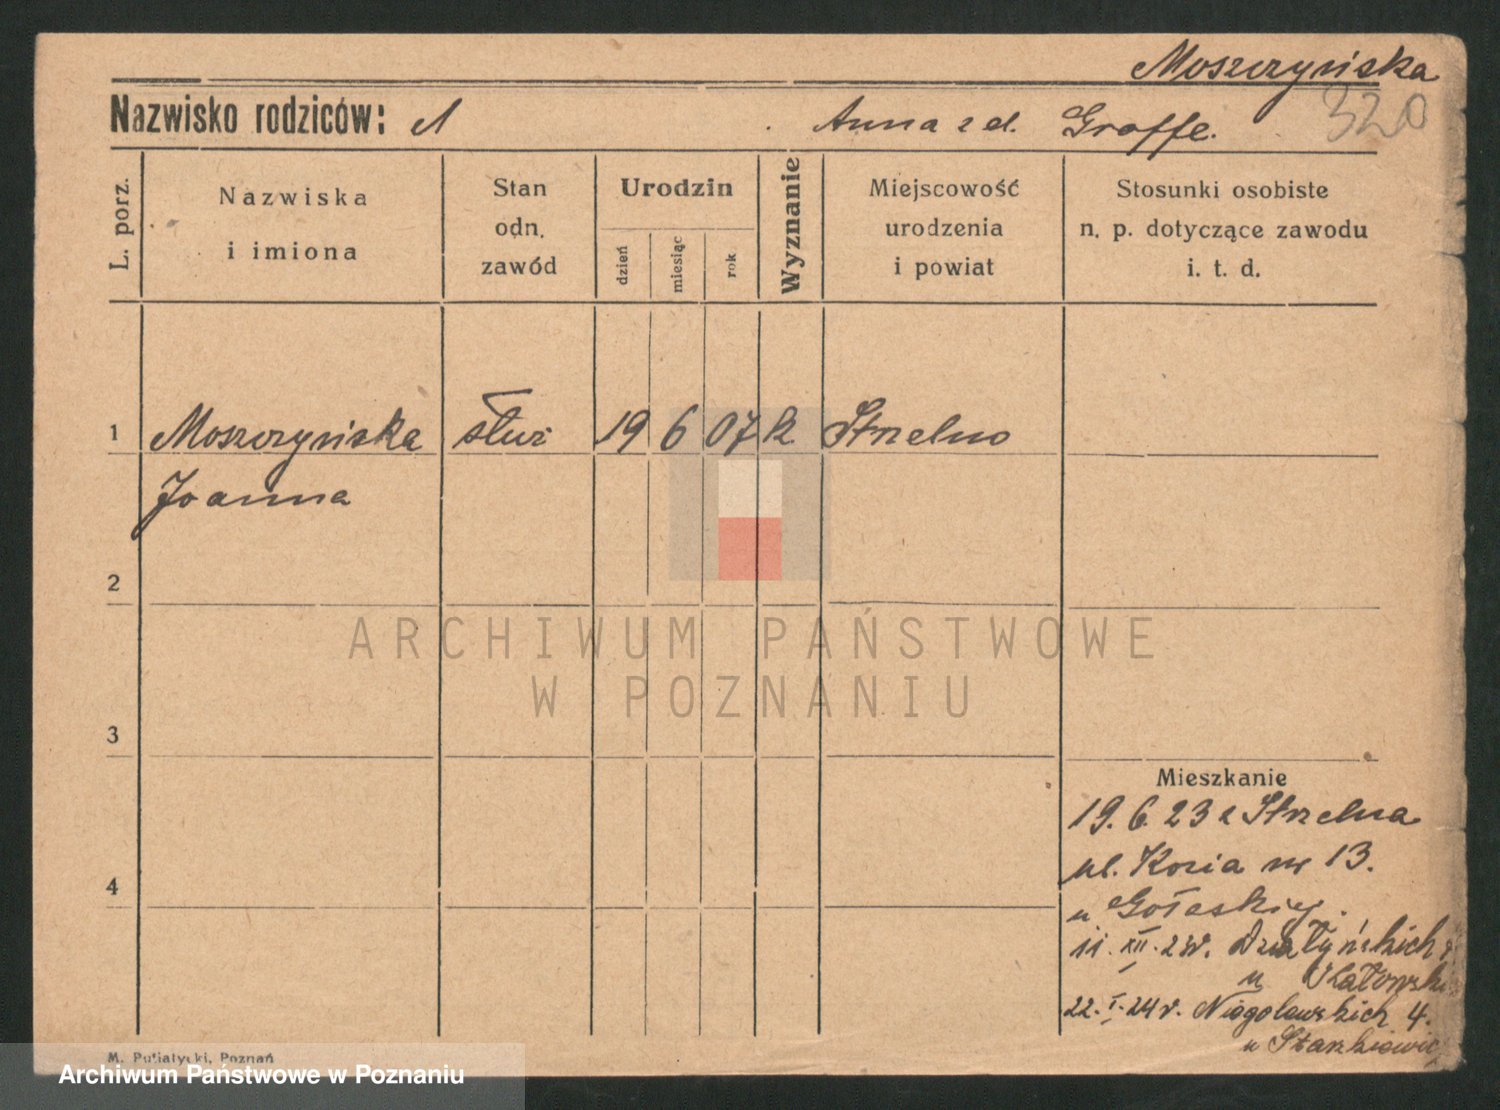 Moszczyńska
Nazwisko rodziców: Anna z d. Groffe. 320
L. porz.
Nazwiska
i imiona
Stan
odn.
zawód
Urodzin
dzień
miesiąc
rok
Wyznanie
Miejscowość
urodzenia
i powiat
Stosunki osobiste
n. p. dotyczące zawodu
i. t. d.
1 Moszczyńska służ 19 6 07 k. Strzelno
Joanna
2
3
4
ARCHIWUM PAŃSTWOWE
W POZNANIU
Mieszkanie
19. 6. 23 z Strzelna
ul. Kozia nr 13.
u
11. XII. Działyńskich
u
22. I. 24 r. Niegolewskich 4.
u
M. Putiatycki, Poznań
Archiwum Państwowe w Poznaniu